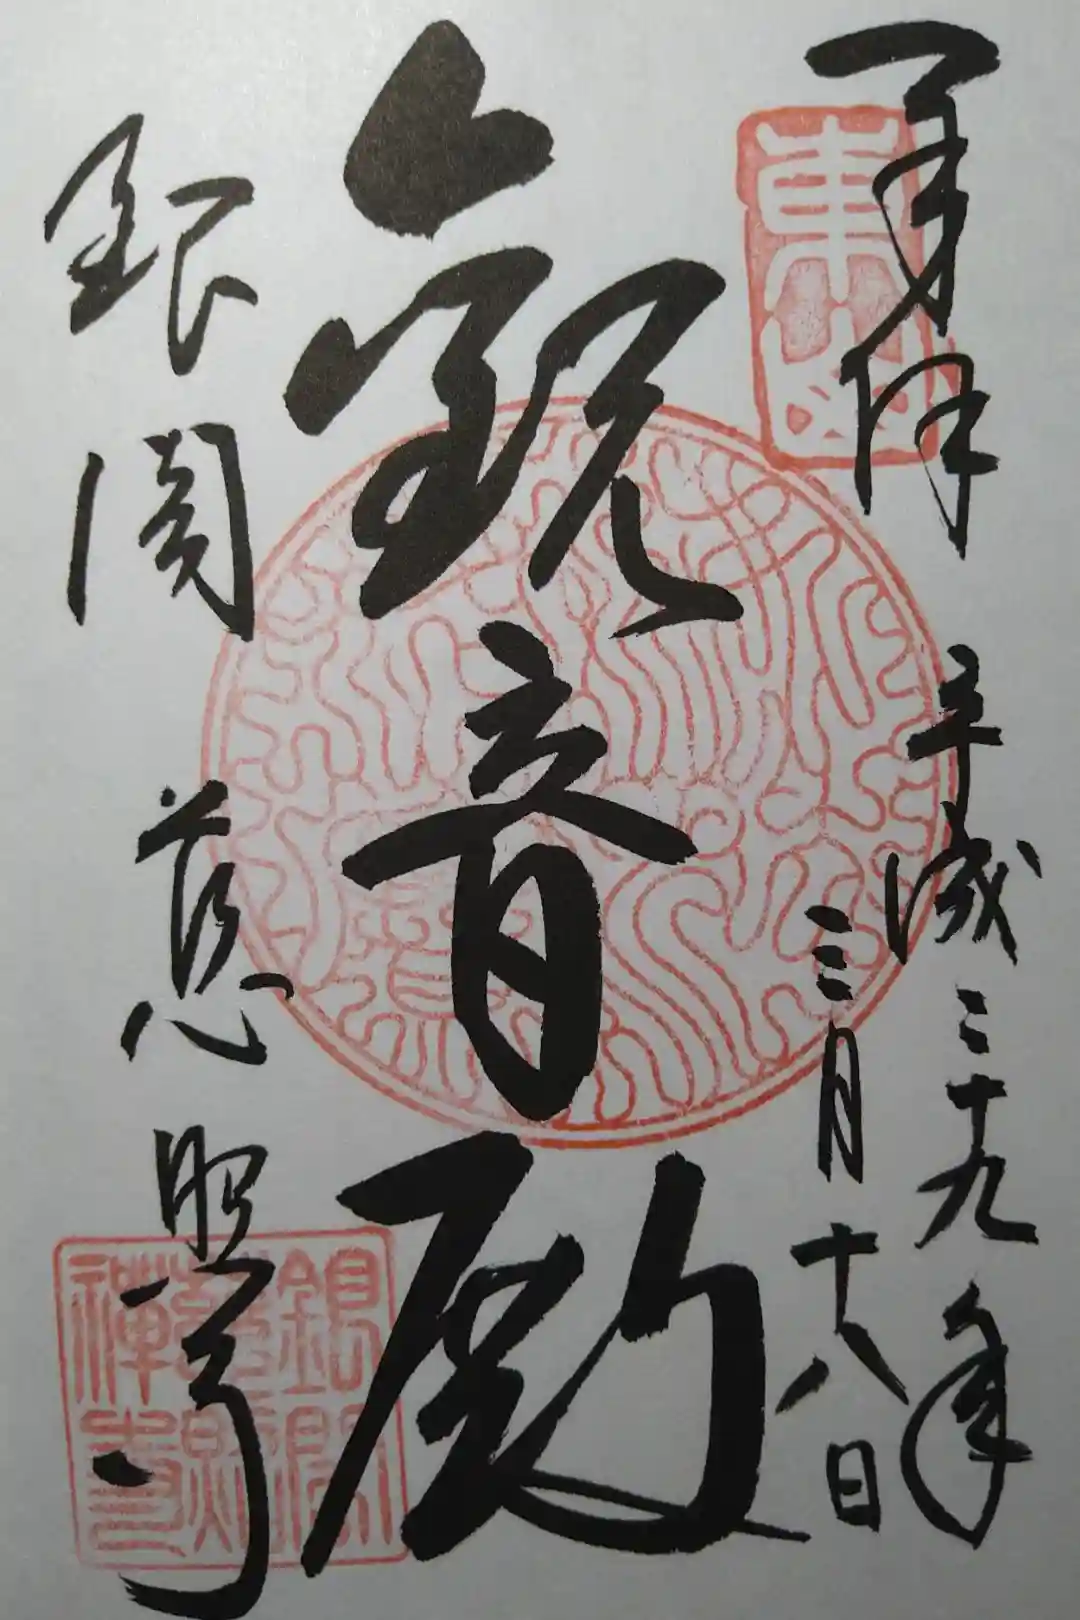 奉拝
平成二十九年
三月十八日
観音殿
銀閣 慈照寺
東山
銀閣慈照禅寺